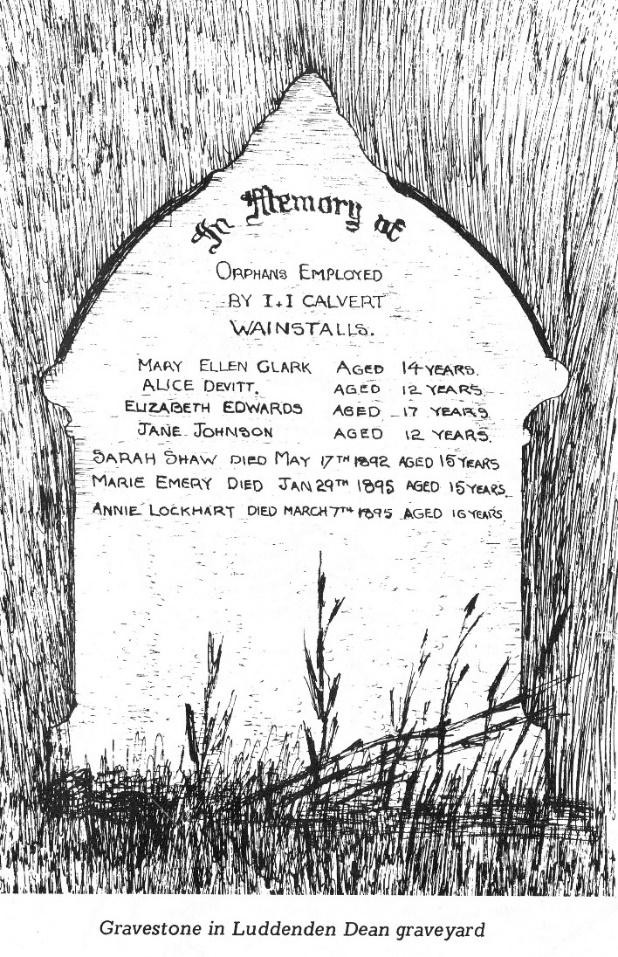 In Memory of
ORPHANS EMPLOYED
BY I+I CALVERT
WAINSTALLS.
MARY ELLEN CLARK AGED 14 YEARS.
ALICE DEVITT, AGED 12 YEARS
ELIZABETH EDWARDS AGED 17 YEARS
JANE JOHNSON AGED 12 YEARS.
SARAH SHAW DIED MAY 17TH 1892 AGED 15 YEARS
MARIE EMERY DIED JAN 29TH 1895 AGED 15 YEARS
ANNIE LOCKHART DIED MARCH 7TH 1895 AGED 16 YEARS
Gravestone in Luddenden Dean graveyard